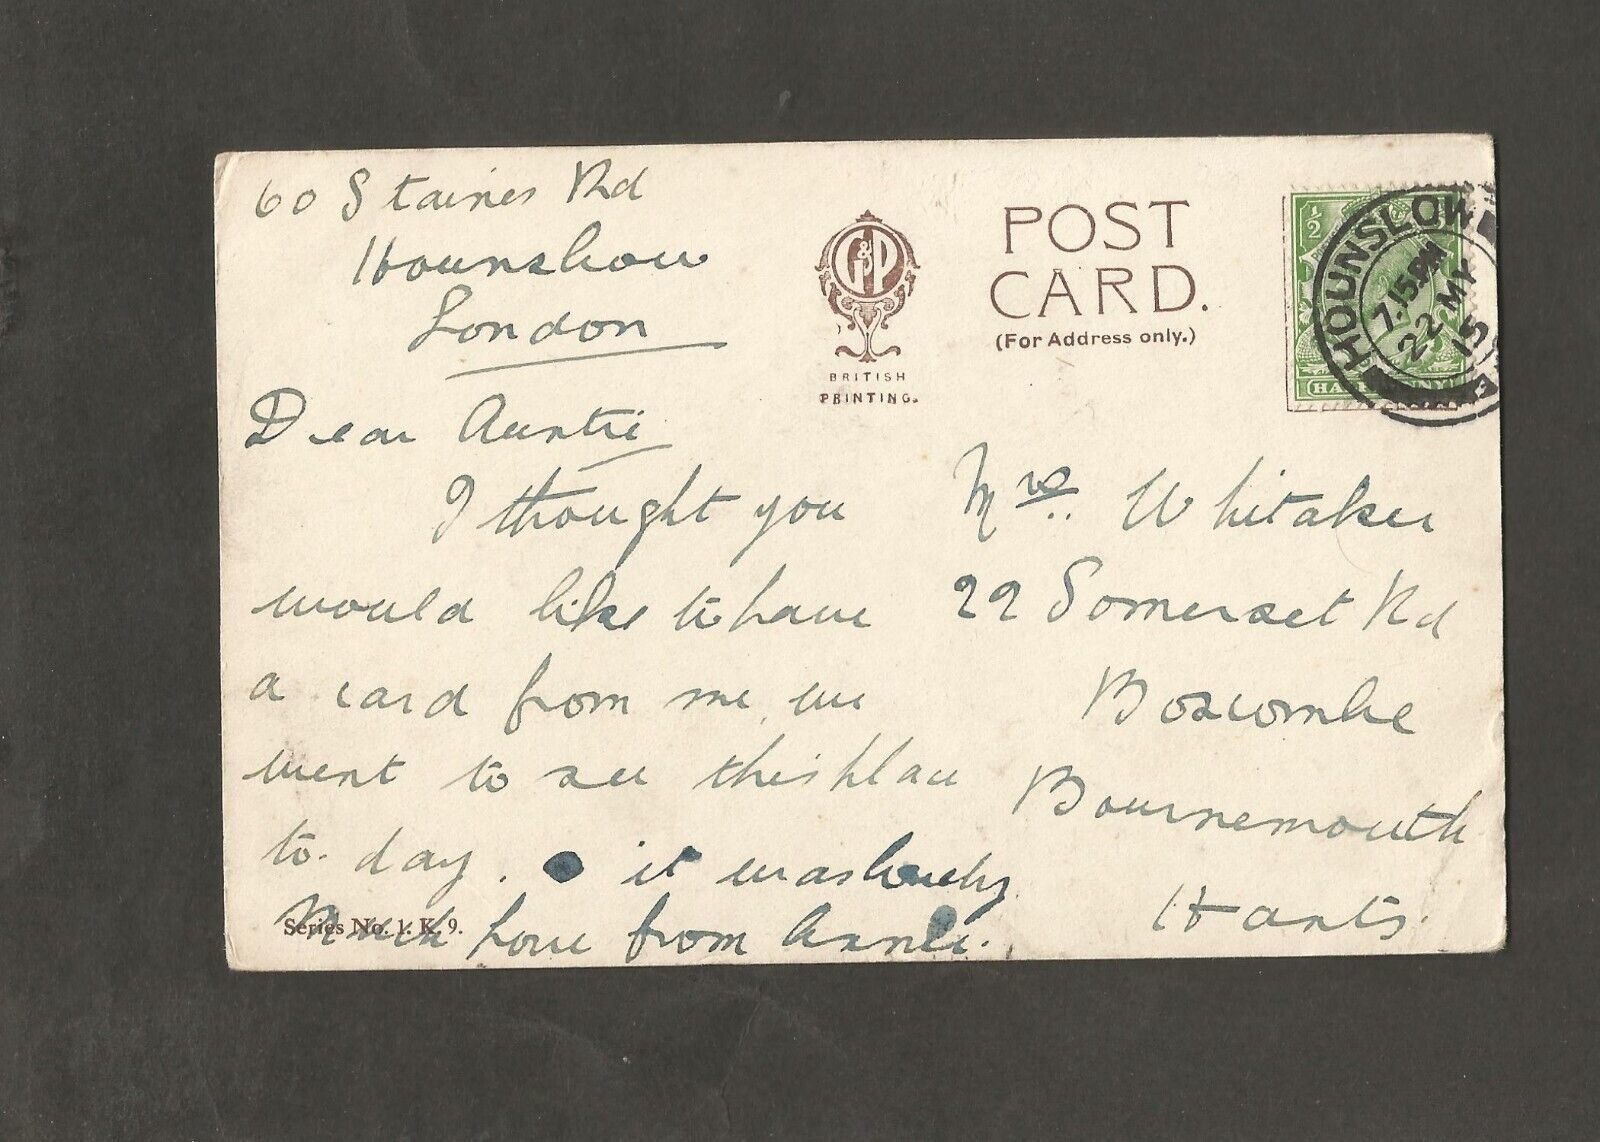 60 Staines Rd
Hounslow
London
Dear Auntie
I thought you
would like to have
a card from me, we
went to see this place
to-day. it was lovely
Much love from Annie.
Series No. 1. K. 9.
G&P
BRITISH
PRINTING.
POST
CARD.
(For Address only.)
½
HALFPENNY
HOUNSLOW
7.15PM
22 MY
15
Mrs. Whitaker
22 Somerset Rd
Boscombe
Bournemouth
Hants.